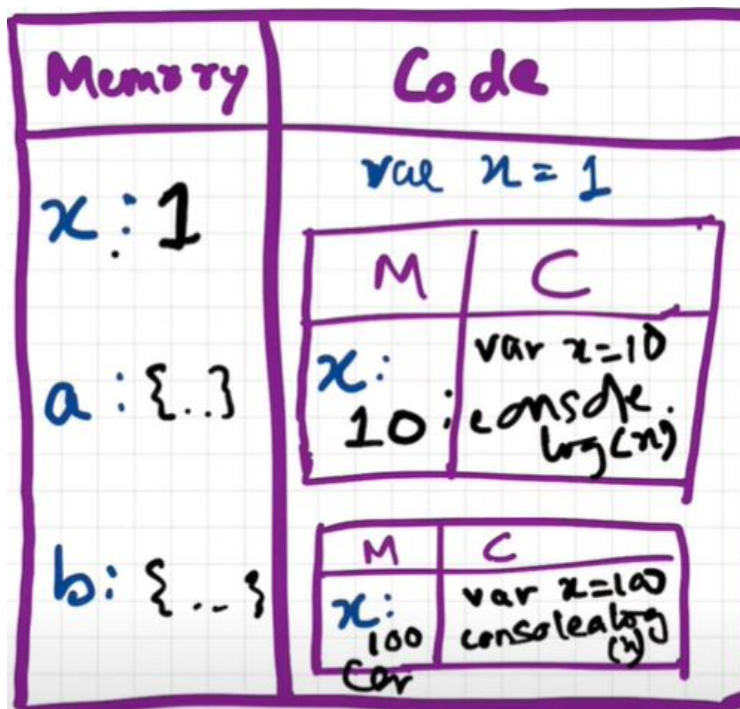 Memory
Code
x : 1
a : {..}
b : {...}
var x = 1
M
C
x:
10
var x=10
console.
log(x)
M
C
x:
100
var x=100
consolealog
(x)